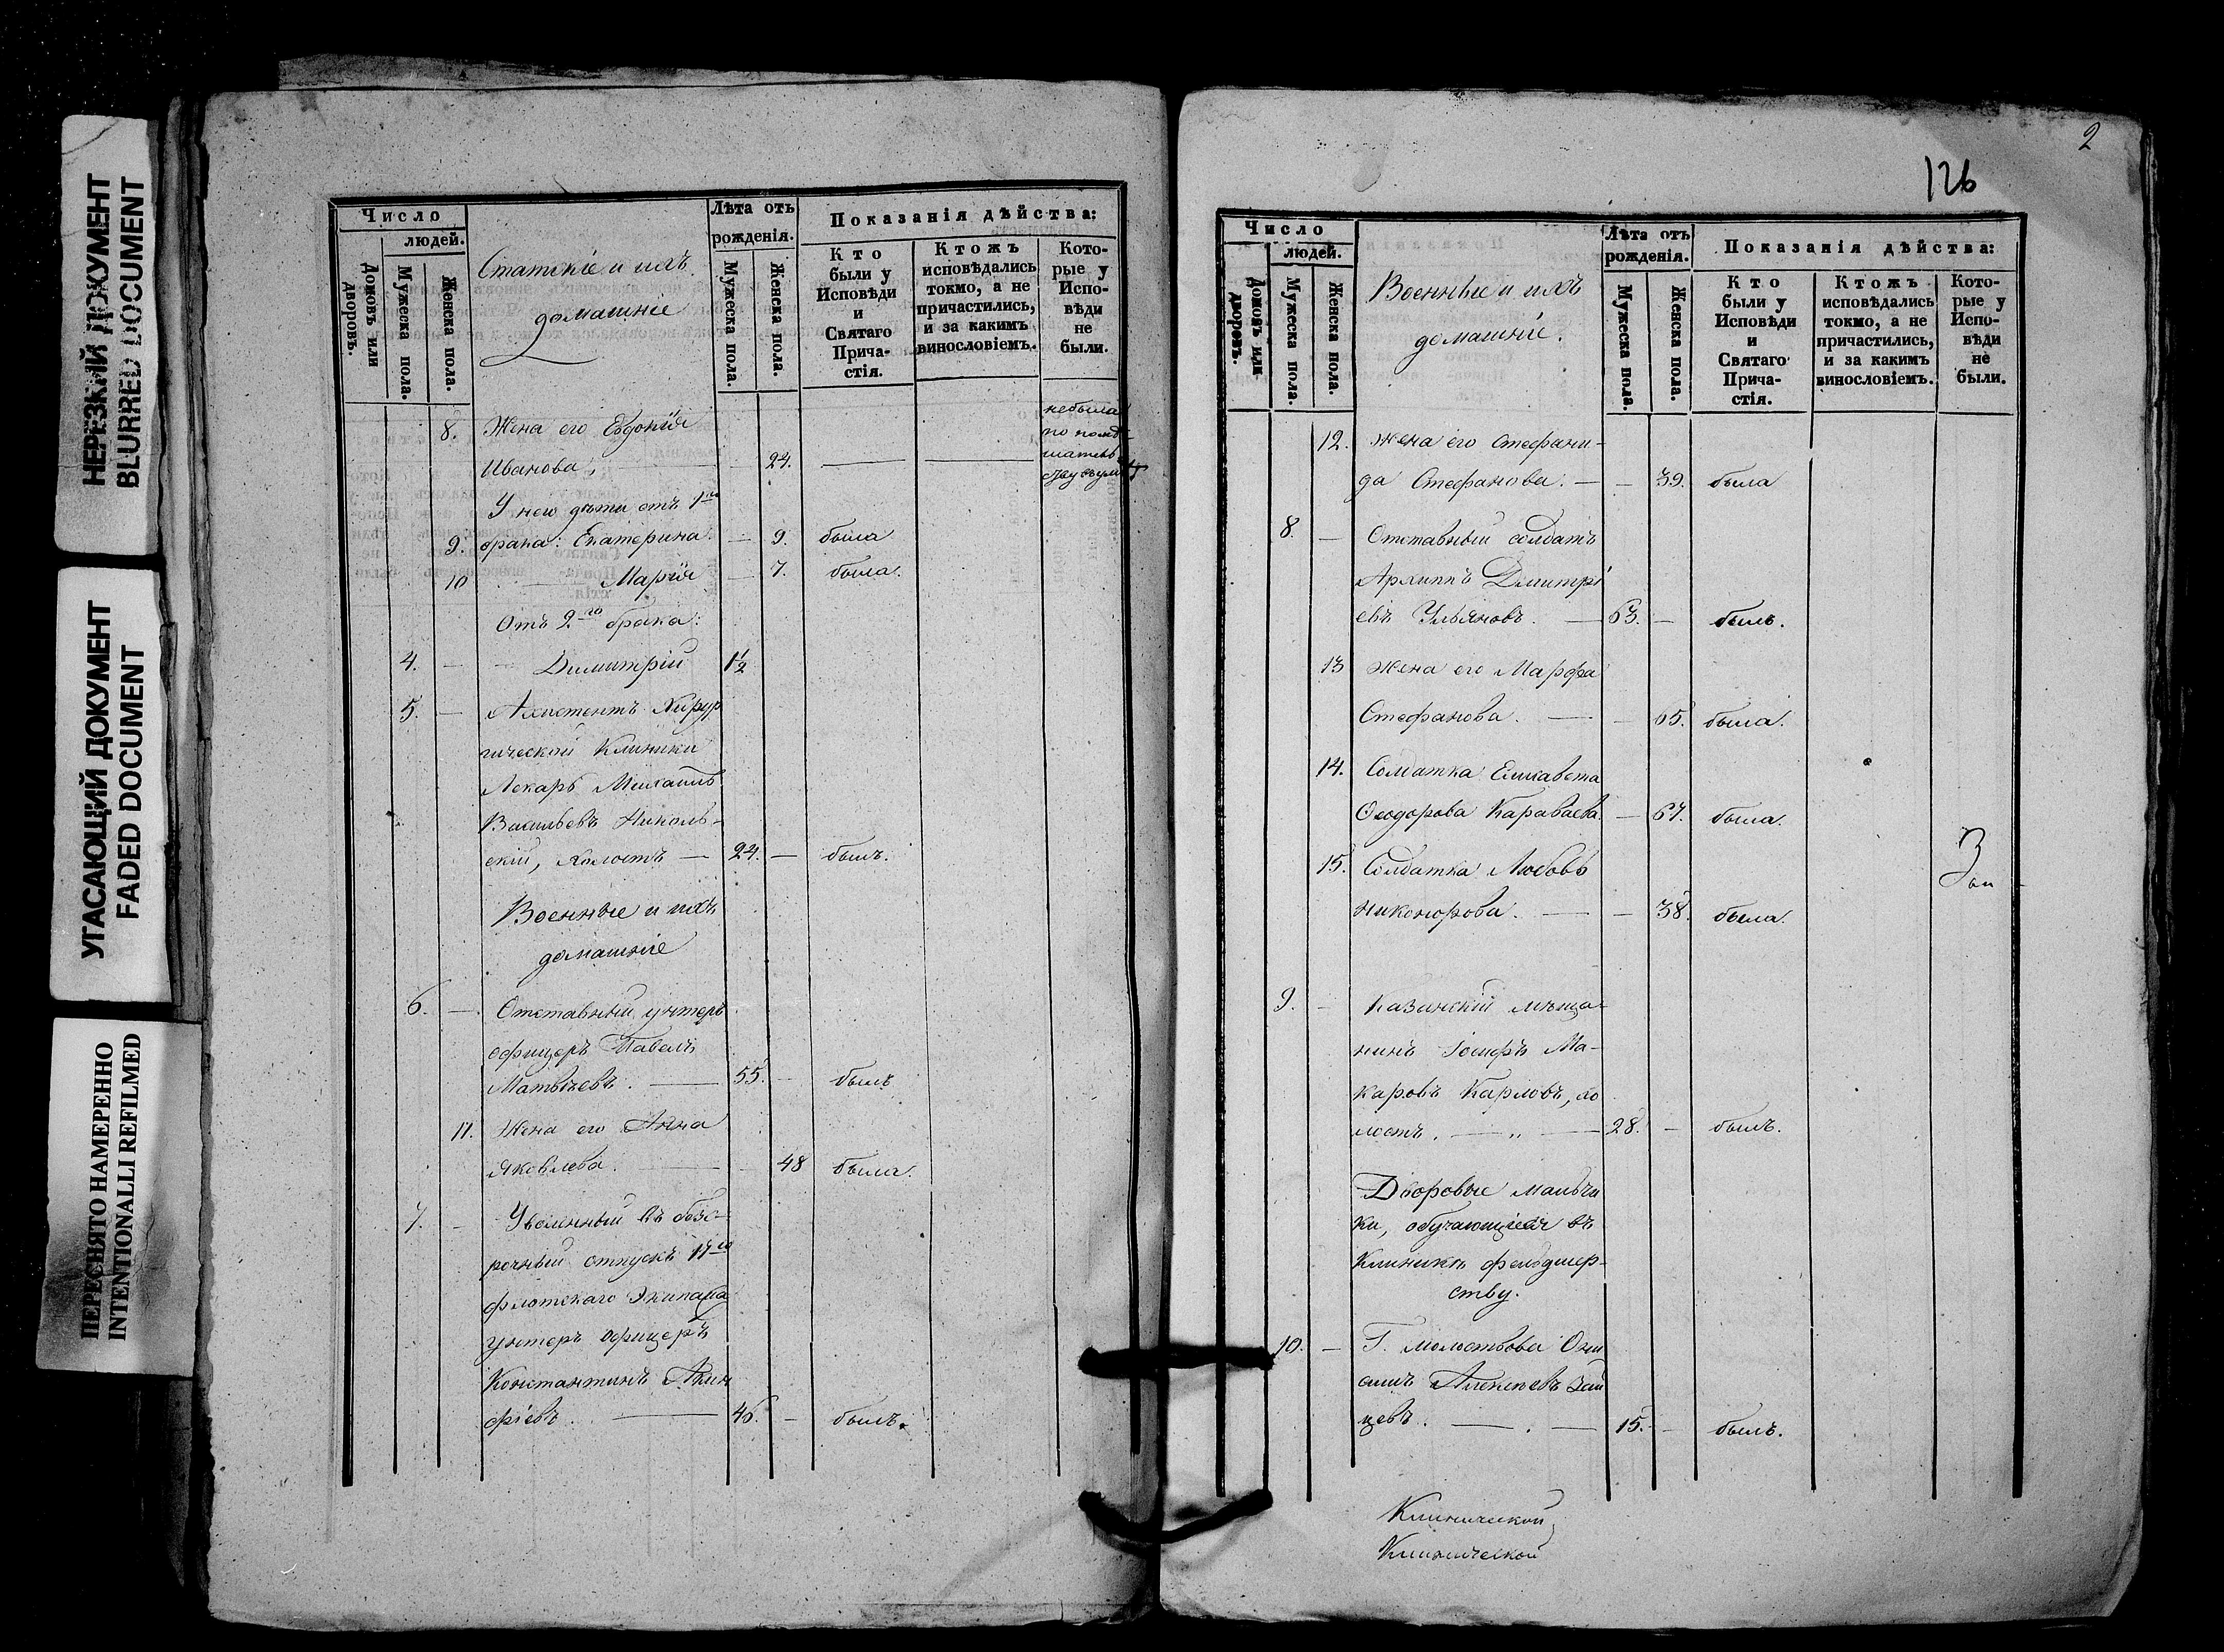 НЕРЕЗКИЙ ДОКУМЕНТ
BLURRED DOCUMENT
УГАСАЮЩИЙ ДОКУМЕНТ
FADED DOCUMENT
ПЕРЕСНЯТО НАМЕРЕННО
INTENTIONALLI REFILMED
Число
людей.
Домовъ или дворовъ.
Мужеска пола.
Женска пола.
Статскіе и ихъ
домашніе
Лѣта отъ
рожденія.
Мужеска пола.
Женска пола.
Показанія дѣйства:
Кто
были у
Исповѣди
и
Святаго
Прича-
стія.
Ктожъ
исповѣдались
токмо, а не
причастились,
и за какимъ
винословіемъ.
Кото-
рые у
Испо-
вѣди
не
были.
8. Жена его Евдокія
Иванова, — 24. — —
небыла
по
У него дѣти отъ 1го
9. брака: Екатерина — 9. была
10 Марія — 7. была.
Отъ 2го брака:
4. — Димитрій 1½
5. — Ассистентъ Хирур
гической Клиники
Лекарь Михаилъ
Васильевъ Николь-
скій, холостъ — 24. — былъ.
Военные и ихъ
домашніе
6. — Отставный унтеръ
офицеръ Павелъ
Матвѣевъ. — 55. — былъ
11. Жена его Анна
Яковлева. — 48 была.
7. — Уволенный въ безс-
рочный отпускъ 17го
флотскаго Экипажа
унтеръ офицеръ
Константинъ
фіевъ. — 46. — былъ.
2
126
Число
людей.
Домовъ или дворовъ.
Мужеска пола.
Женска пола.
Военные и ихъ
домашніе.
Лѣта отъ
рожденія.
Мужеска пола.
Женска пола.
Показанія дѣйства:
Кто
были у
Исповѣди
и
Святаго
Прича-
стія.
Ктожъ
исповѣдались
токмо, а не
причастились,
и за какимъ
винословіемъ.
Кото-
рые у
Испо-
вѣди
не
были.
12. жена его Стефани-
да Стефанова. — — 39. была
8. — Отставный солдатъ
Архиппъ Дмитрі
евъ Ульяновъ. — 63. — былъ.
13 жена его Марфа
Стефанова. — — 65. была.
14. Солдатка Елисавета
Ѳеодорова Караваева. — 67. была.
15. Солдатка Любовь
Никонорова. — — 38. была.
9. — Казанскій мѣща-
нинъ Іосифъ Ма-
каровъ Карловъ, хо
лостъ. — „ — 28. — былъ.
Дворовые мальчи
ки, обучающіеся въ
Клиникѣ фельдшер-
ству.
10. — Г. Молоствова
Алексѣевъ Зай
цевъ. — . — 15. — былъ.
Клинической
Клинической